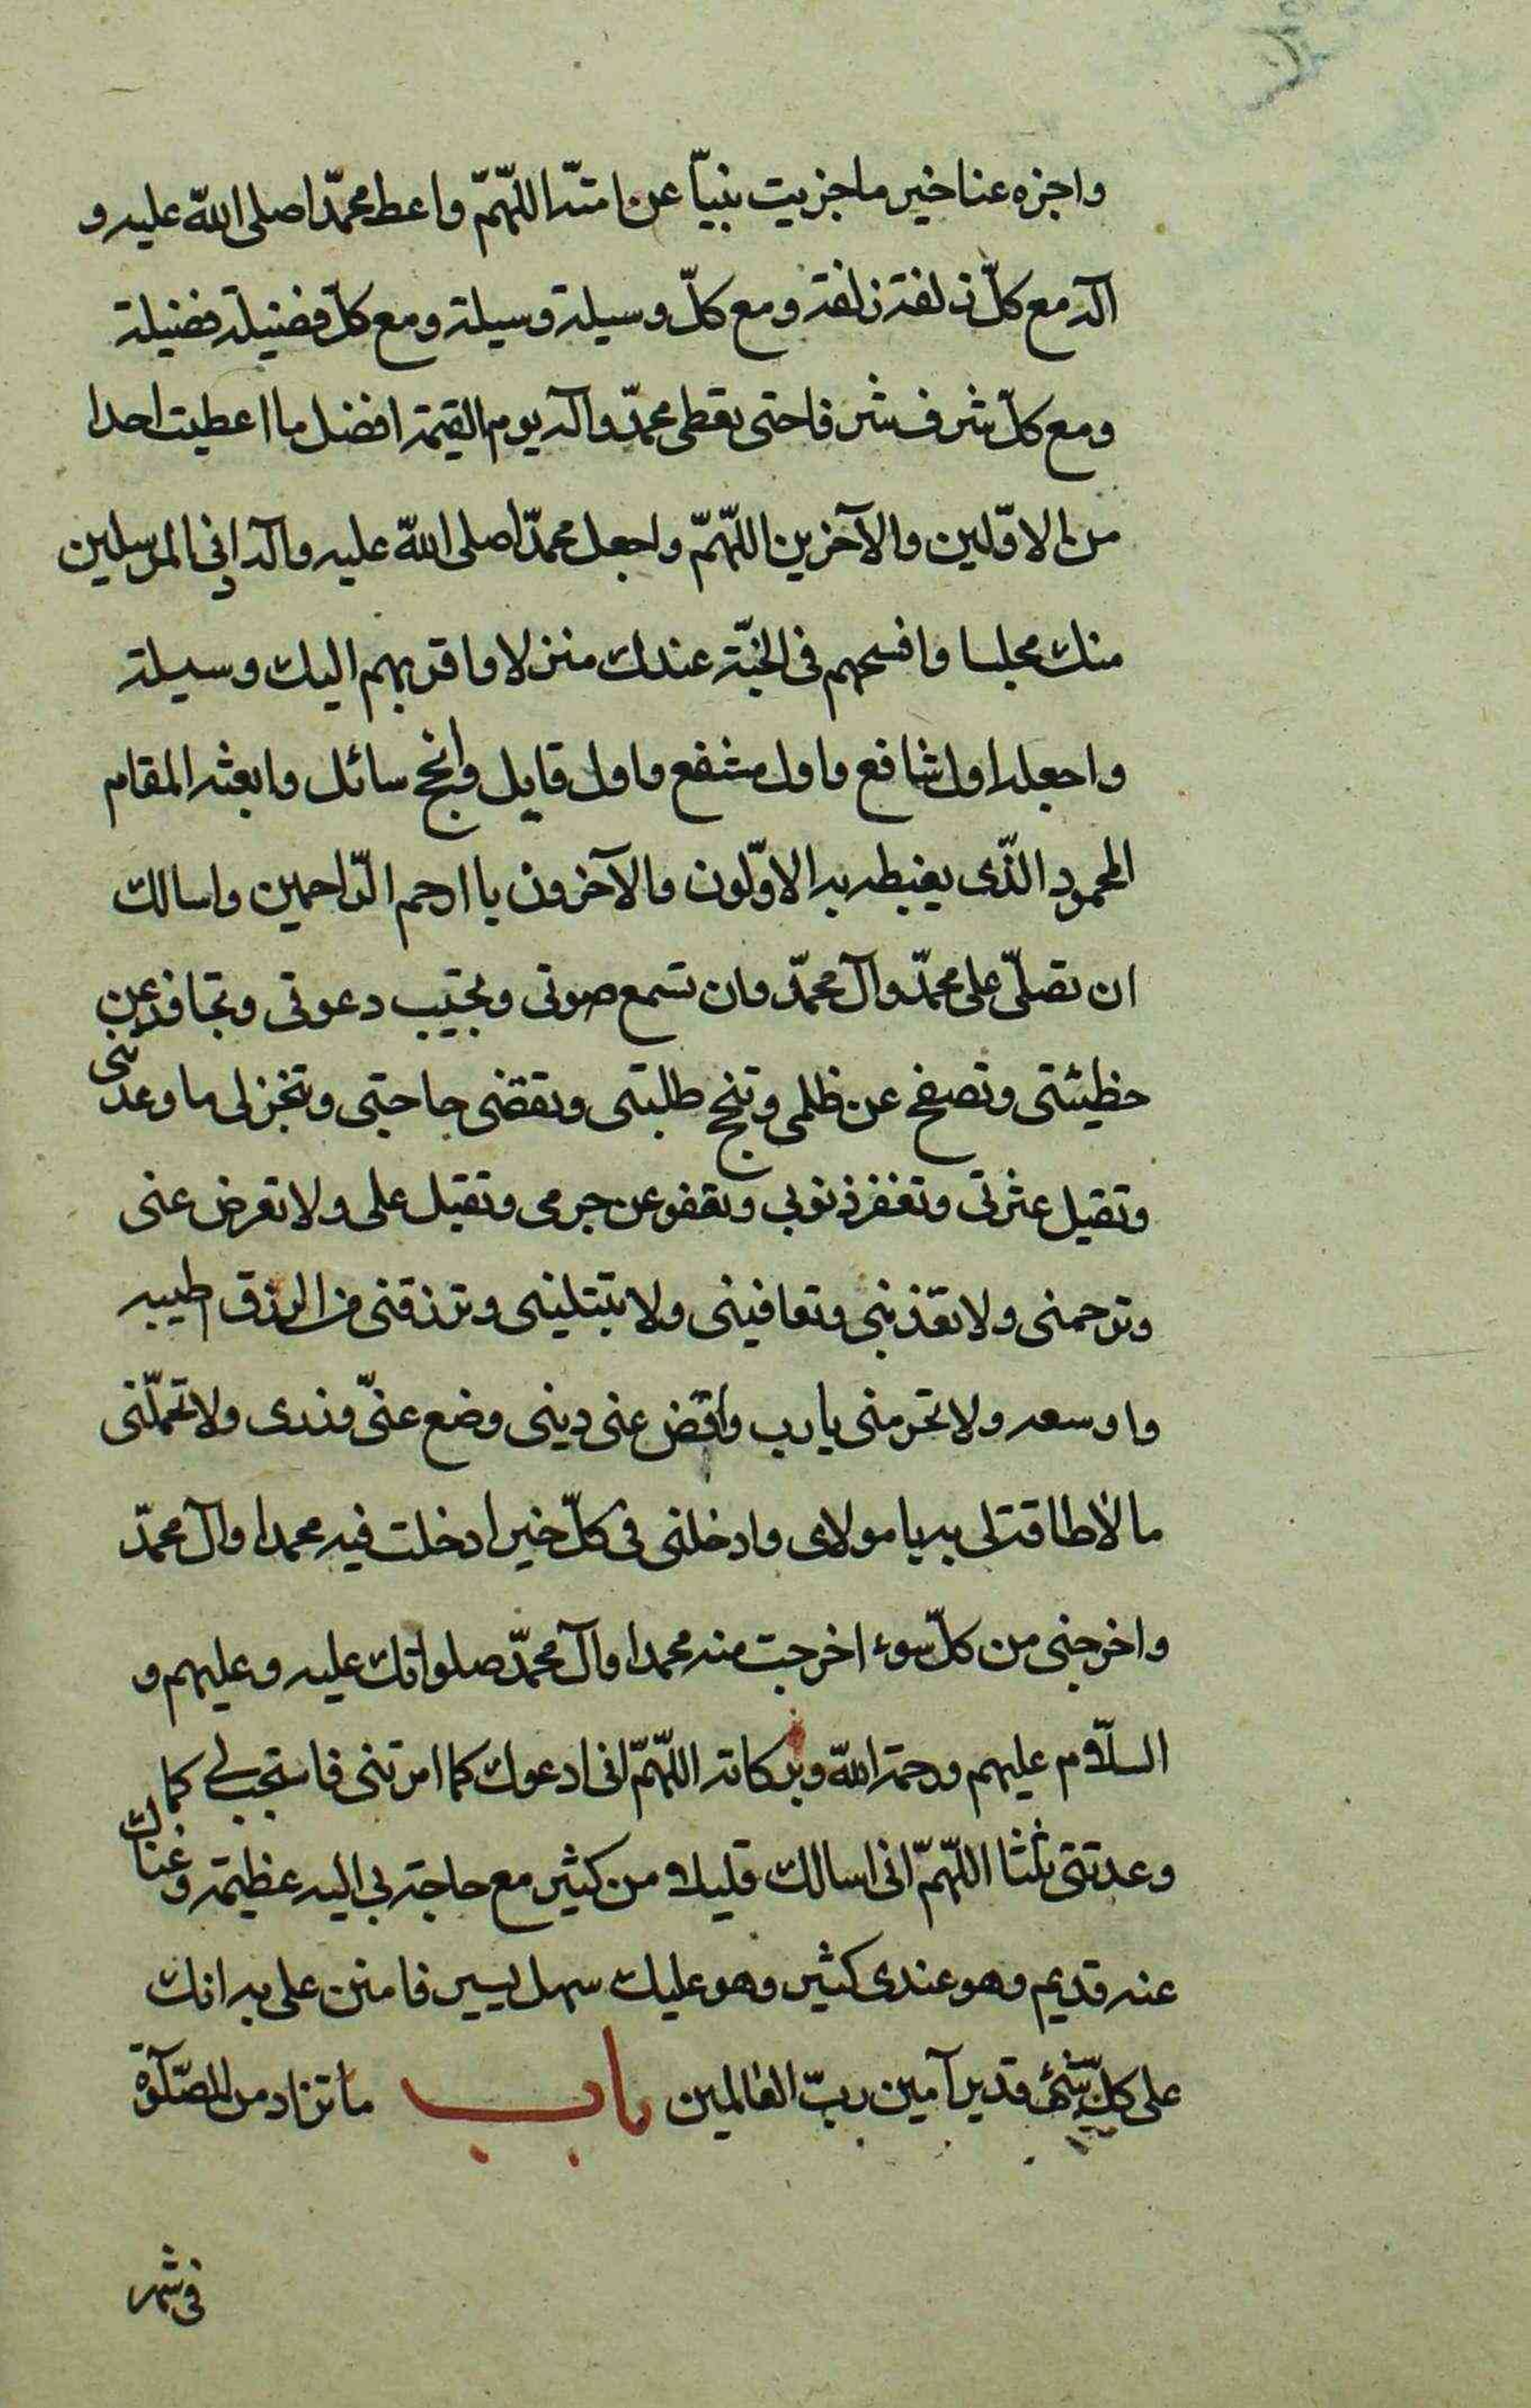 واجزه عنا خير ما جزيت نبيّا عن امته اللّهمّ واعط محمّدا صلى اللّه عليه و
آله مع كلّ زلفة زلفة ومع كلّ وسيلة وسيلة ومع كلّ فضيلة فضيلة
ومع كلّ شرف شرفا حتى تعطى محمّد وآله يوم القيمة افضل ما اعطيت احدا
من الاوّلين والآخرين اللّهمّ واجعل محمّدا صلى اللّه عليه وآله ادنى المرسلين
منك مجلسا وافسحهم فى الجنّة عندك منزلا واقربهم اليك وسيلة
واجعله اول شافع واول مشفع واول قايل وانجح سائل وابعثه المقام
المحمود الذّى يغبطه به الاوّلون والآخرون يا ارحم الرّاحمين واسالك
ان تصلّى على محمّد وآل محمّد وان تسمع صوتى وتجيب دعوتى وتجاوز عن
خطيئتى وتصفح عن ظلمى وتنجح طلبتى وتقضى حاجتى وتنجز لى ما وعدتنى
وتقيل عثرتى وتغفر ذنوبى وتعفو عن جرمى وتقبل على ولا تعرض عنى
وترحمنى ولا تعذبنى وتعافينى ولا تبتلينى وترزقنى من الرزق اطيبه
واوسعه ولا تحرمنى يا رب واقض عنى دينى وضع عنّى وزرى ولا تحملّنى
ما لا طاقة لى به يا مولاى وادخلنى فى كلّ خير ادخلت فيه محمدا وآل محمّد
واخرجنى من كلّ سوء اخرجت منه محمدا وآل محمّد صلواتك عليه وعليهم و
السلام عليهم ورحمة اللّه وبركاته اللّهمّ انى ادعوك كما امرتنى فاستجب لى كما
وعدتنى ثلثا اللّهمّ انى اسالك قليلا من كثير مع حاجة بى اليه عظيمة وغناك
عنه قديم وهو عندى كثير وهو عليك سهل يسير فامنن على به انك
على كلّ شئ قدير آمين ربّ العالمين باب ما تزاد من الصّلوة
فى شهر